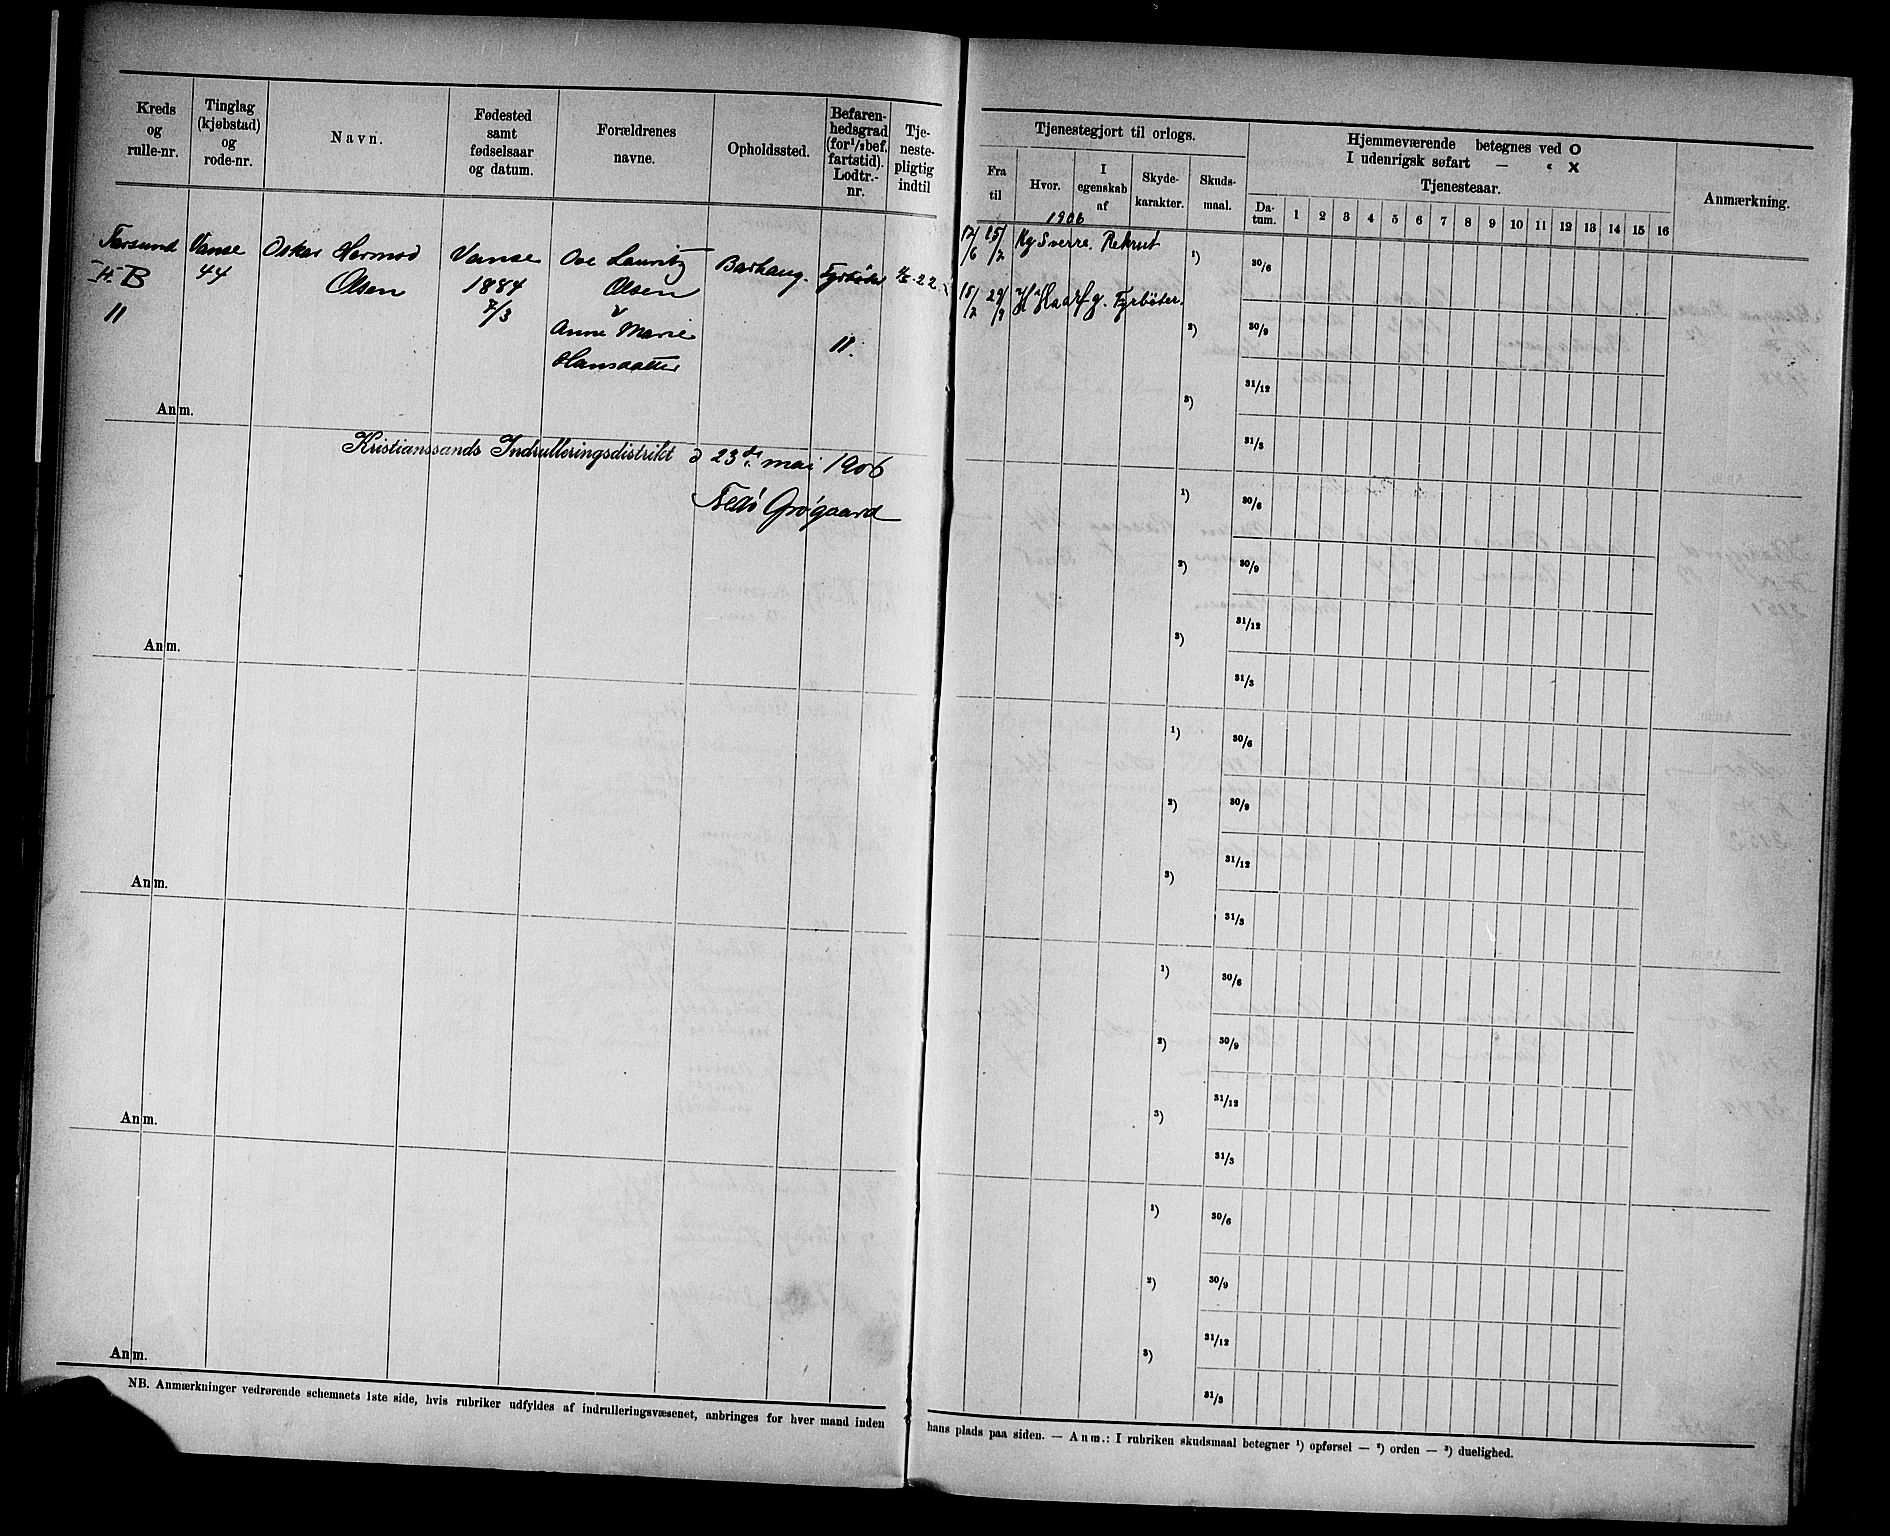 Kreds og rulle-nr.
Tinglag (kjøbstad) og rode-nr.
Navn.
Fødested samt fødselsaar og datum.
Forældrenes navne.
Opholdssted.
Befaren-hedsgrad (for 1/2 bef. fartstid). Lodtr.-nr.
Tje-neste-pligtig indtil
Farsund
B
11
Vanse
44
Oskar Hermod
Olsen
Vanse
1884
7/3
Ove Lauritz
Olsen
Anne Marie
Hansdatter
Barhaug.
Fyrbøder
11.
22
Anm.
Kristianssands Indrulleringsdistrikt d 23de mai 1906
Grøgaard
Anm.
Anm.
Anm.
Anm.
NB. Anmærkninger vedrørende schemaets 1ste side, hvis rubriker udfyldes af indrulleringsvæsenet, anbringes for hver mand inden
Tjenestegjort til orlogs.
Fra til
Hvor.
I egenskab af
Skyde-karakter.
Skuds-maal.
Hjemmeværende betegnes ved O
I udenrigsk søfart — « X
Tjenesteaar.
Da-tum. 1 2 3 4 5 6 7 8 9 10 11 12 13 14 15 16
Anmærkning.
1906
12/6 15/2 Kg Sverre. Rekrut
15/2 29/9 H Haarfg. Fyrbøter.
1) 30/6
2) 30/9
31/12
3)
31/3
1) 30/6
2) 30/9
31/12
3)
31/3
1) 30/6
2) 30/9
31/12
3)
31/3
1) 30/6
2) 30/9
31/12
3)
31/3
1) 30/6
2) 30/9
31/12
3)
31/3
hans plads paa siden. — Anm.: I rubriken skudsmaal betegner 1) opførsel — 2) orden — 3) duelighed.